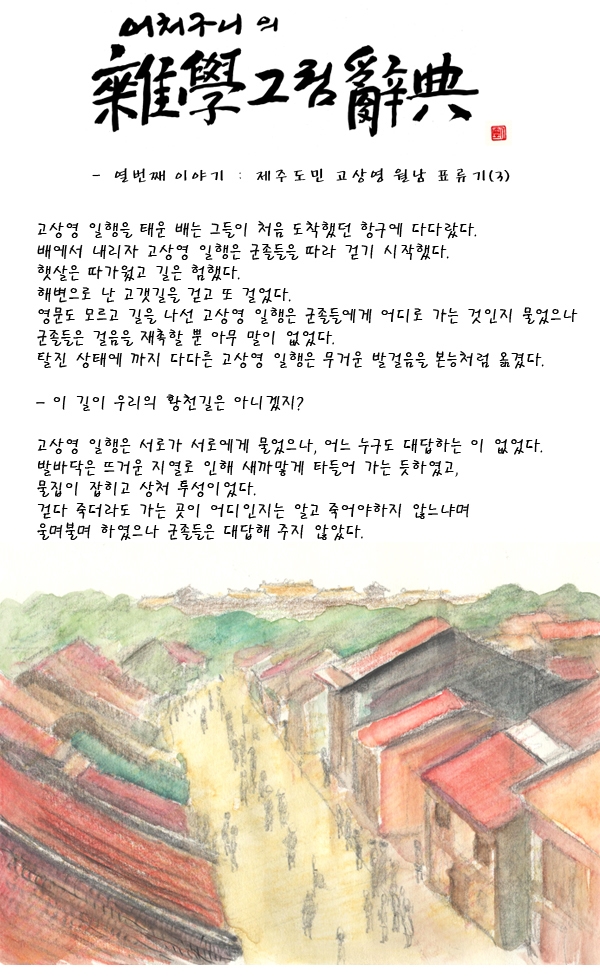 어처구니의
雜學그림辭典
- 열번째 이야기 : 제주도민 고상영 월남 표류기(3)
고상영 일행을 태운 배는 그들이 처음 도착했던 항구에 다다랐다.
배에서 내리자 고상영 일행은 군졸들을 따라 걷기 시작했다.
햇살은 따가웠고 길은 험했다.
해변으로 난 고갯길을 걷고 또 걸었다.
영문도 모르고 길을 나선 고상영 일행은 군졸들에게 어디로 가는 것인지 물었으나
군졸들은 걸음을 재촉할 뿐 아무 말이 없었다.
탈진 상태에 까지 다다른 고상영 일행은 무거운 발걸음을 본능처럼 옮겼다.
- 이 길이 우리의 황천길은 아니겠지?
고상영 일행은 서로가 서로에게 물었으나, 어느 누구도 대답하는 이 없었다.
발바닥은 뜨거운 지열로 인해 새까맣게 타들어 가는 듯하였고,
물집이 잡히고 상처 투성이었다.
걷다 죽더라도 가는 곳이 어디인지는 알고 죽어야하지 않느냐며
울며불며 하였으나 군졸들은 대답해 주지 않았다.